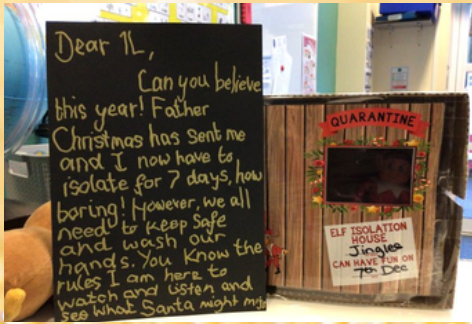 Dear 1L,
Can you believe
this year! Father
Christmas has sent me
and I now have to
isolate for 7 days, how
boring! However, we all
need to keep safe
and wash our
hands. You know the
rules I am here to
watch and listen and
see what Santa might
QUARANTINE
ELF ISOLATION
HOUSE
Jingles
CAN HAVE FUN ON
7th Dec